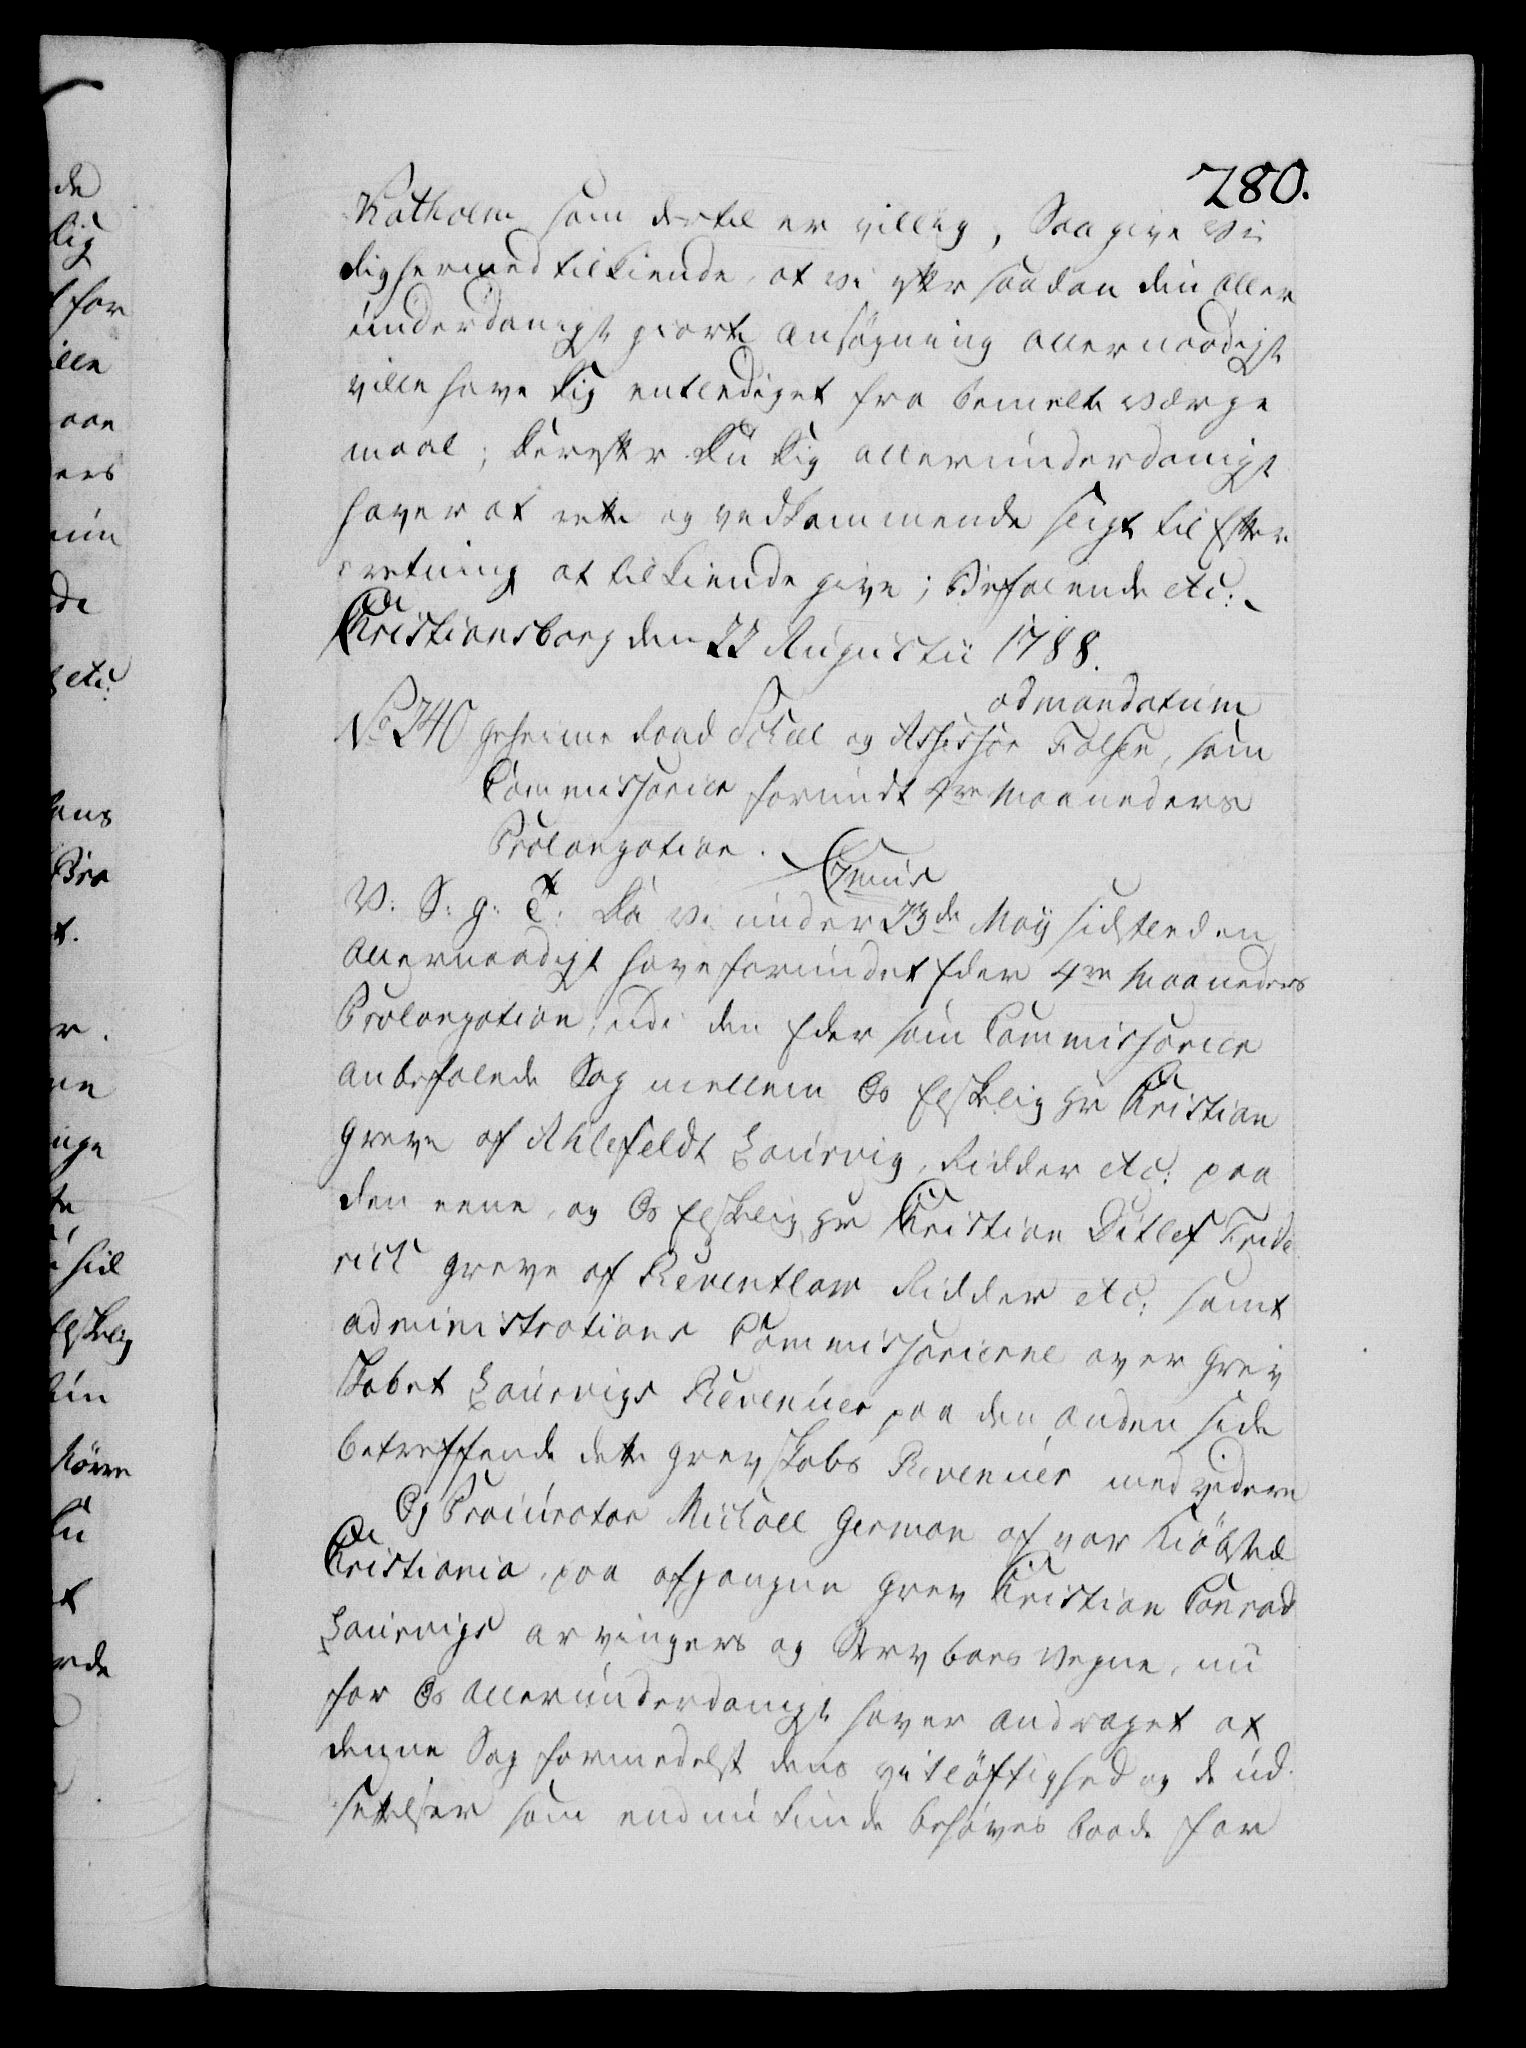 280.
Ratholm som dertil er villig, Saa give Vi
dig hermed tilkiende, at vi efter saadan din aller
underdanigst giorte Ansögning allernaadigst
ville have dig entlediget fra bemelte Værge
maal; derefter du dig allerunderdanigst
haver at rette og vedkommende sligt til Efter
retning at tilkiende give; Befalende etc:
Christiansborg den 22 Augustii 1788.
ad mandatum
No 240 Geheime Raad Scheel og Assessor Falsen, som
Commissarier forundt 4re Maaneders
Prolongation.
V: S: g: T: Da Vi under 23de Maij sidstleden
allernaadigst have forundet Eder 4re Maaneders
Prolongation udi den Eder som Commissarier
anbefalede Sag mellem Os Elskelig Hr Christian
Greve af Ahlefeldt Laurvig, Ridder etc: paa
den eene, og Os Elskelig Hr Christian Ditlef Fride
rich Greve af Reventlow Ridder etc: samt
administrations Commissarierne over Grev
skabet Laurvigs Revenuer paa den anden side
betreffende dette Grevskabs Revenuer med videre
Og Procurator Michael German af vor Kiöbsted
Christiania, paa afgangne Grev Christian Conrad
Laurvigs arvingers og Stervboes Vegne, nu
for Os allerunderdanigst haver andraget at
denne Sag formedelst dens vitlöftighed og de ud
settelser som endnu kunde behöves baade for
de
lig
for
ille
ers
de
etc:
ans
Bro
t.
r.
ne
te
sid
Elskelig
du